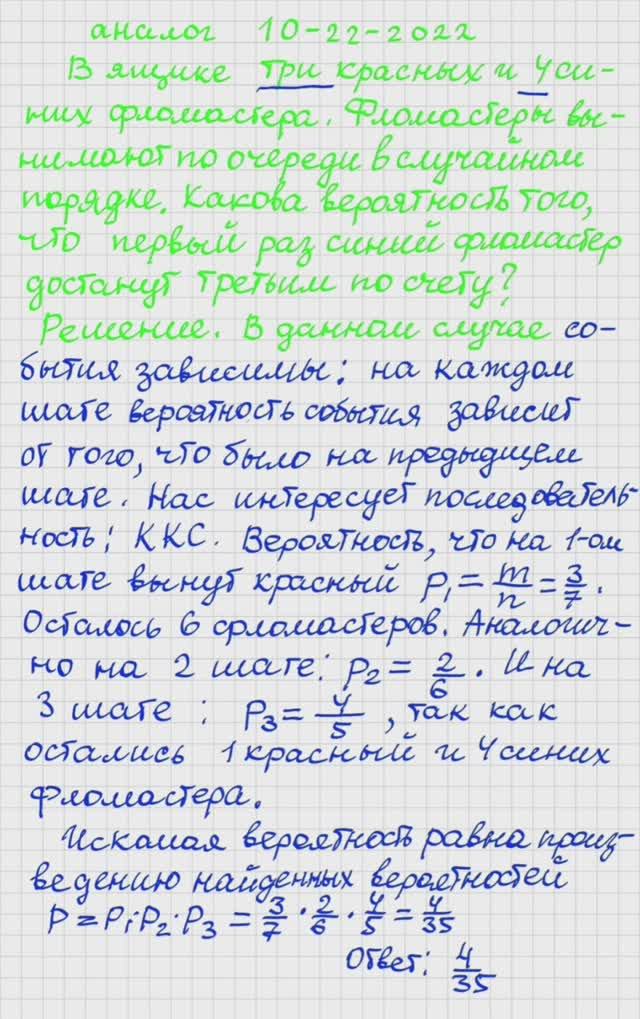 аналог 10-22-2022
В ящике три красных и 4 си-
них фломастера. Фломастеры вы-
нимают по очереди в случайном
порядке. Какова вероятность того,
что первый раз синий фломастер
достанут третьим по счету?
Решение. В данном случае со-
бытия зависимы: на каждом
шаге вероятность события зависит
от того, что было на предыдущем
шаге. Нас интересует последователь-
ность: ККС. Вероятность, что на 1-ом
шаге вынут красный P₁ = m/n = 3/7.
Осталось 6 фломастеров. Аналогич-
но на 2 шаге: P₂ = 2/6. И на
3 шаге: P₃ = 4/5, так как
остались 1 красный и 4 синих
фломастера.
Искомая вероятность равна произ-
ведению найденных вероятностей
P = P₁·P₂·P₃ = 3/7 · 2/6 · 4/5 = 4/35
Ответ: 4/35